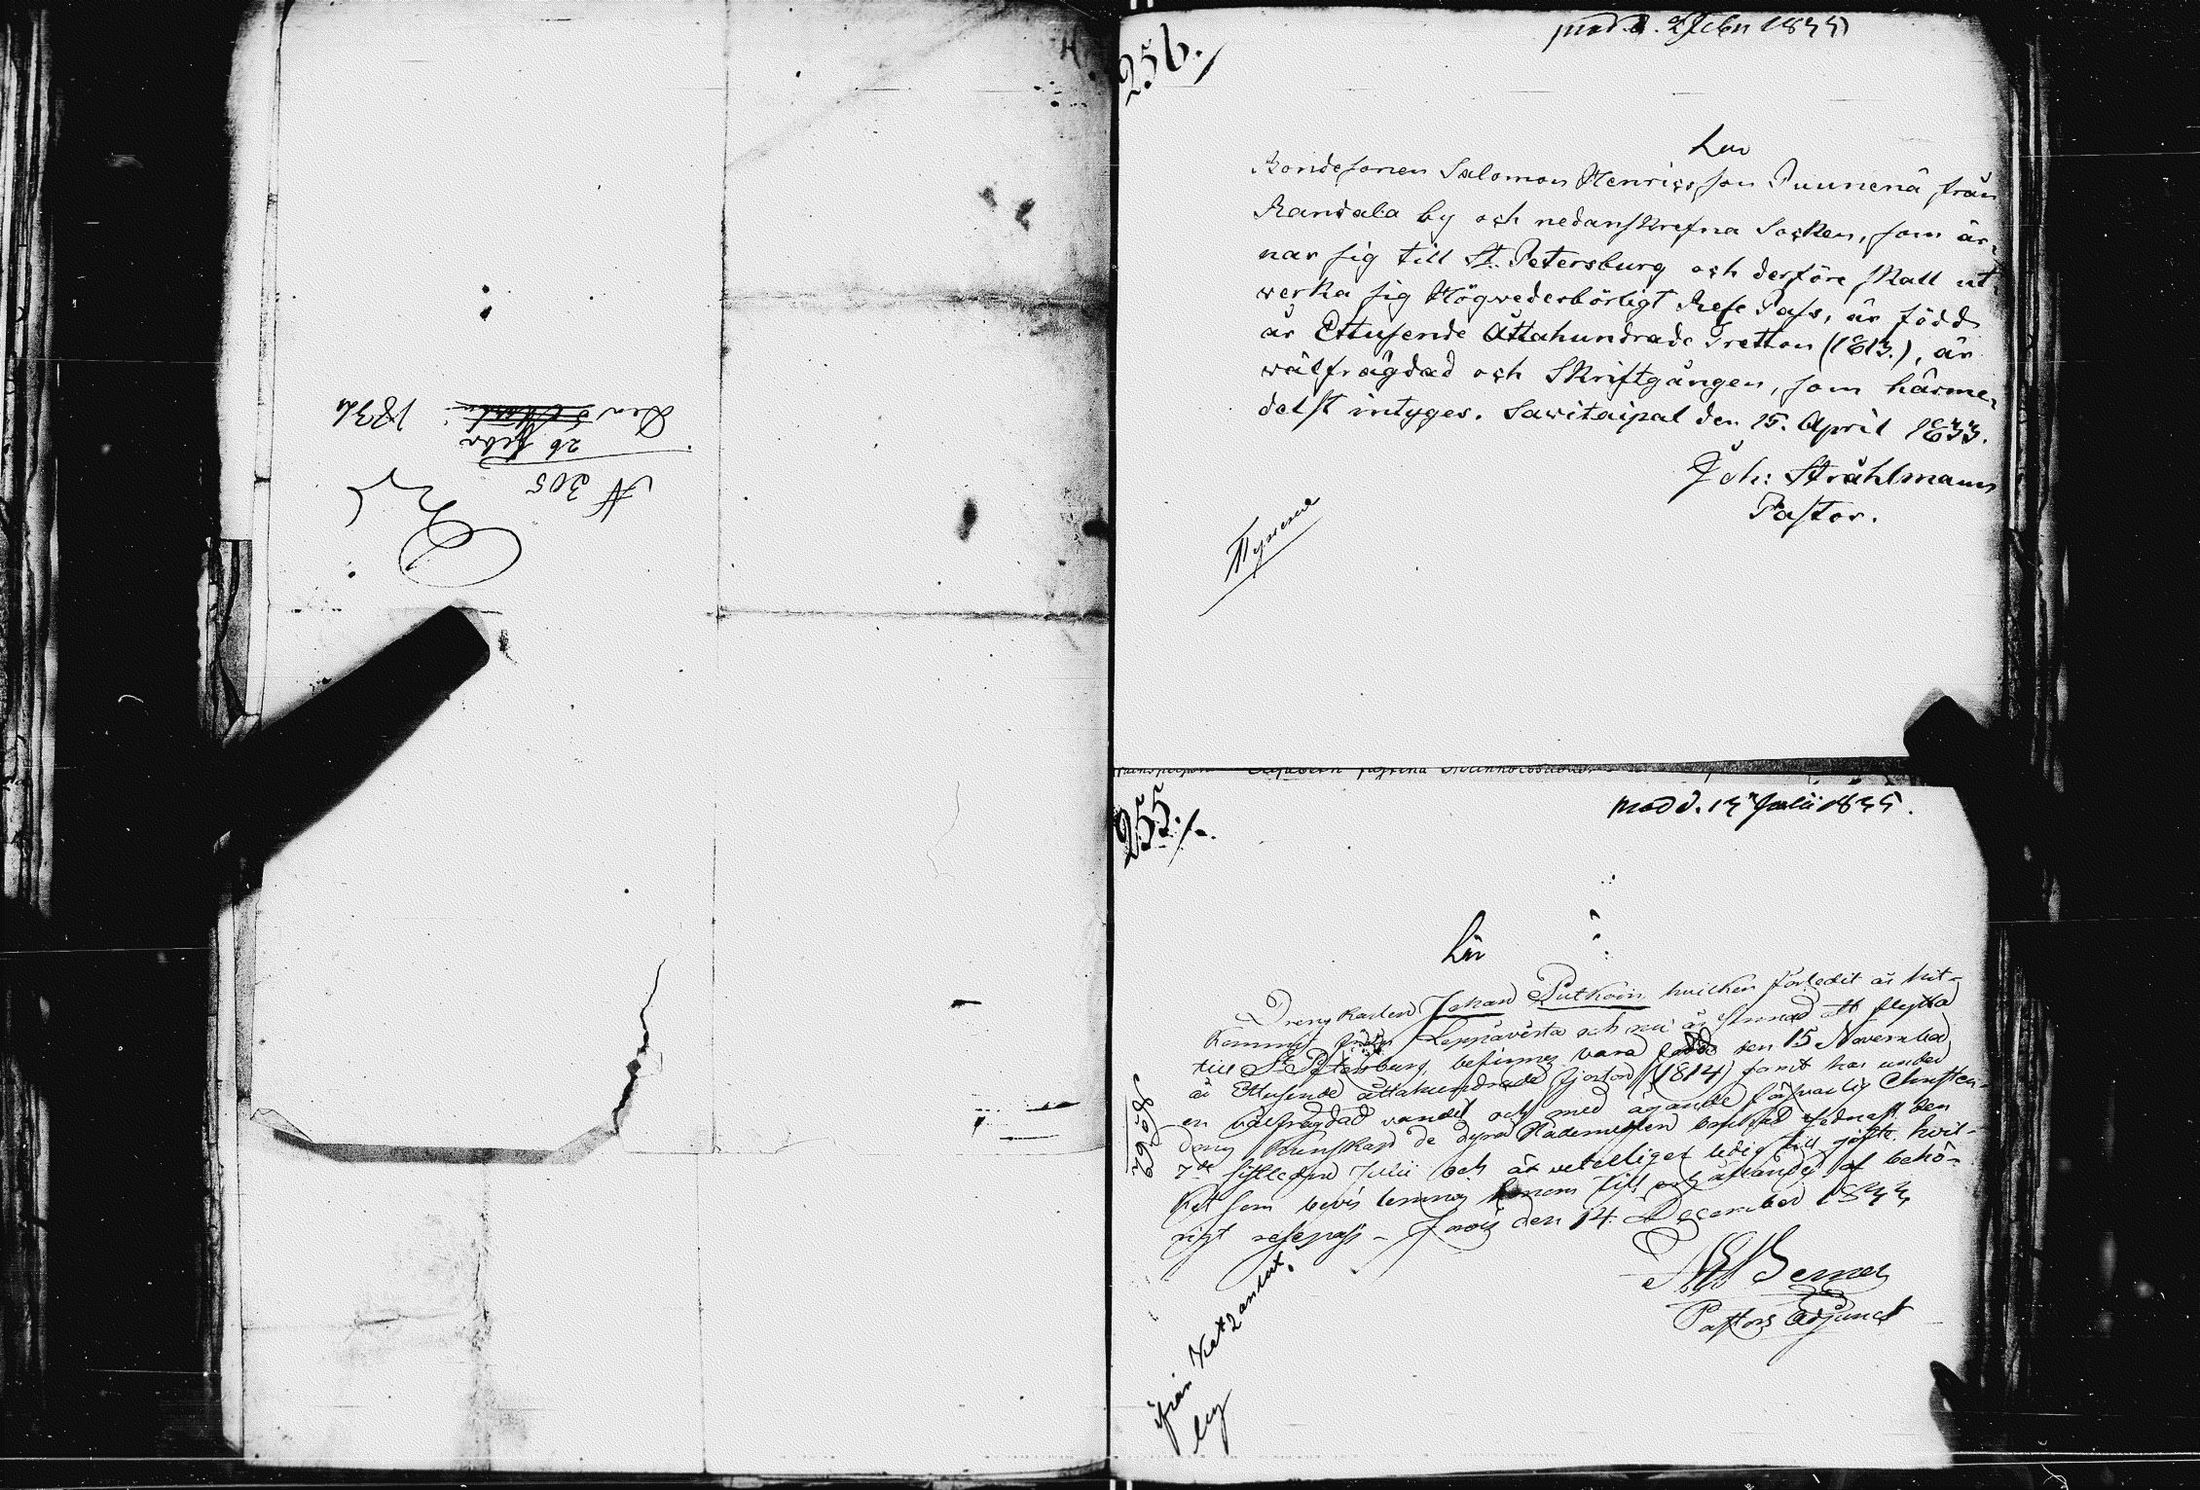 Den 5 Martii 1834
26 Febr
N 305
256.
prod. d. 2 Febr 1835
Lur
Bondesonen Salomon Henricsson Puunenä från
Kandala by och nedanskrefna Socken, som är-
nar sig till St. Petersburg och derföre skall ut-
werka sig Högwederbörligt Rese Pass, är född
år Ettusende Åttahundrade Tretton (1813.), är
wälfrägdad och Skriftgången, som härme-
delst intyges. Sawitaipal den 15. April 1833.
Joh: Stråhlmann
Pastor.
255.
prod d. 17 Julii 1835.
Drengkarlen Johan Putkoin hvilken förledit år hit-
kommit från Leppävirta och nu är sinnad att flytta
till St Petersburg, befinnes vara född den 15 November
år Ettusende åttahundrade fjorton (1814) samt har under
en välfrägdad vandel och med ägande försvarlig Christen-
doms kunskap de dyra Nådemedlen brukat sednast den
7de sistledne Julii och är veterligen ledig till gifte. hvil-
ket som bevis lemnas honom till erhållande af behö-
rigt respass – Jorois den 14 December 1833
Berner
Pastors Adjunct
ifrån
by